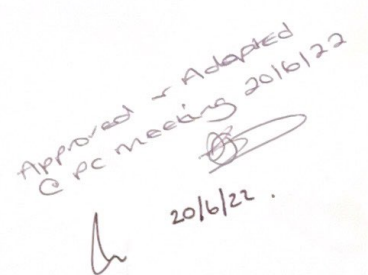 Approved + Adopted
@ PC Meeting 20/6/22
20/6/22.